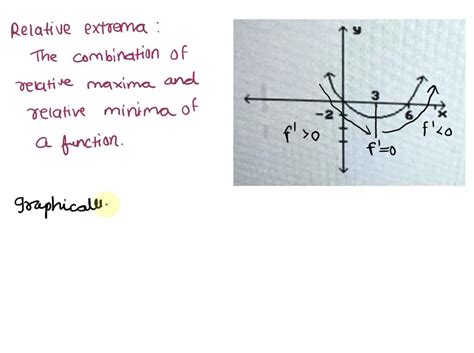 Relative extrema :
The combination of
relative maxima and
relative minima of
a function.
graphically.
y
3
-2
6
x
f' > 0
f' = 0
f' < 0